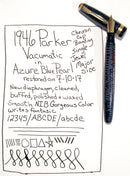 1946 Parker
Vacumatic
in
Azure Blue Pearl
restored on 7-10-17
Chevron
Cap
Band
Single
Jewel
Major
Size
New diaphragm, cleaned,
buffed, polished & waxed
Smooth NIB Gorgeous Color
writes fantastic
12345/ABCDE/abcde